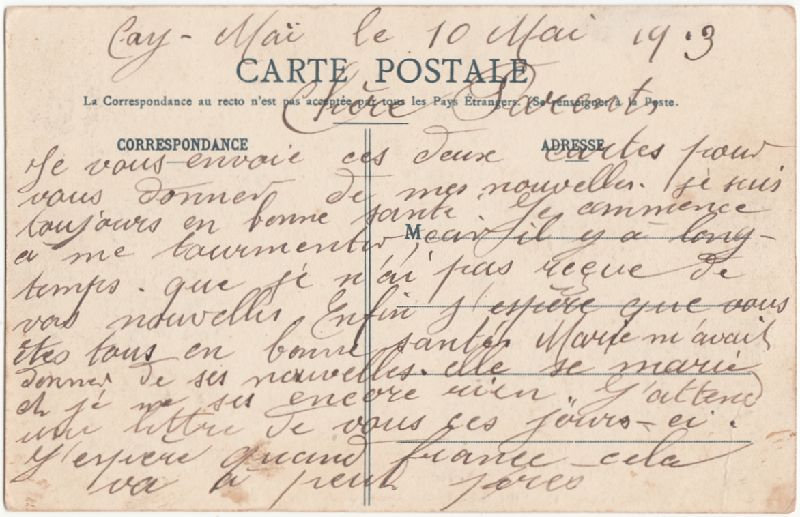 Cay-Maï le 10 Mai 19.3
CARTE POSTALE
La Correspondance au recto n'est pas acceptée par tous les Pays Etrangers. (Se renseigner à la Poste.
Chère Parents
CORRESPONDANCE
ADRESSE
Je vous envoie ces deux cartes pour
vous donner de mes nouvelles. je suis
toujours en bonne santé. Je commence
M
a me tourmenter, car il y a long-
temps. que je n'ai pas reçue de
vos nouvelles Enfin j'espère que vous
êtes tous en bonne santé. Marie m'avait
donner de ses nouvelles. elle se marie
et je ne ses encore rien J'attend
une lettre de vous ces jours-ci.
J'espère quand france cela
va à peut près